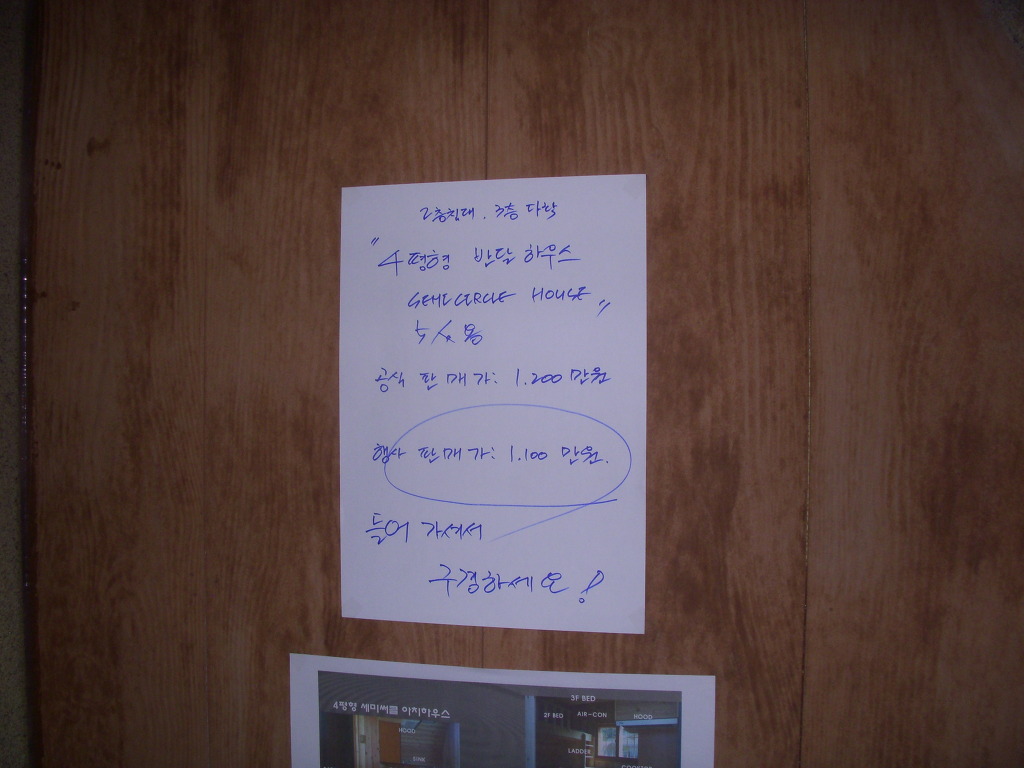 2층침대. 3층 다락
"4평형 반달 하우스
SEMICIRCLE HOUSE"
5人용
공식 판매가: 1.200만원
행사 판매가: 1.100 만원.
들어 가셔서
구경하세요!
4평형 세미써클 아치하우스
3F BED
2F BED AIR-CON HOOD
HOOD
LADDER
SINK